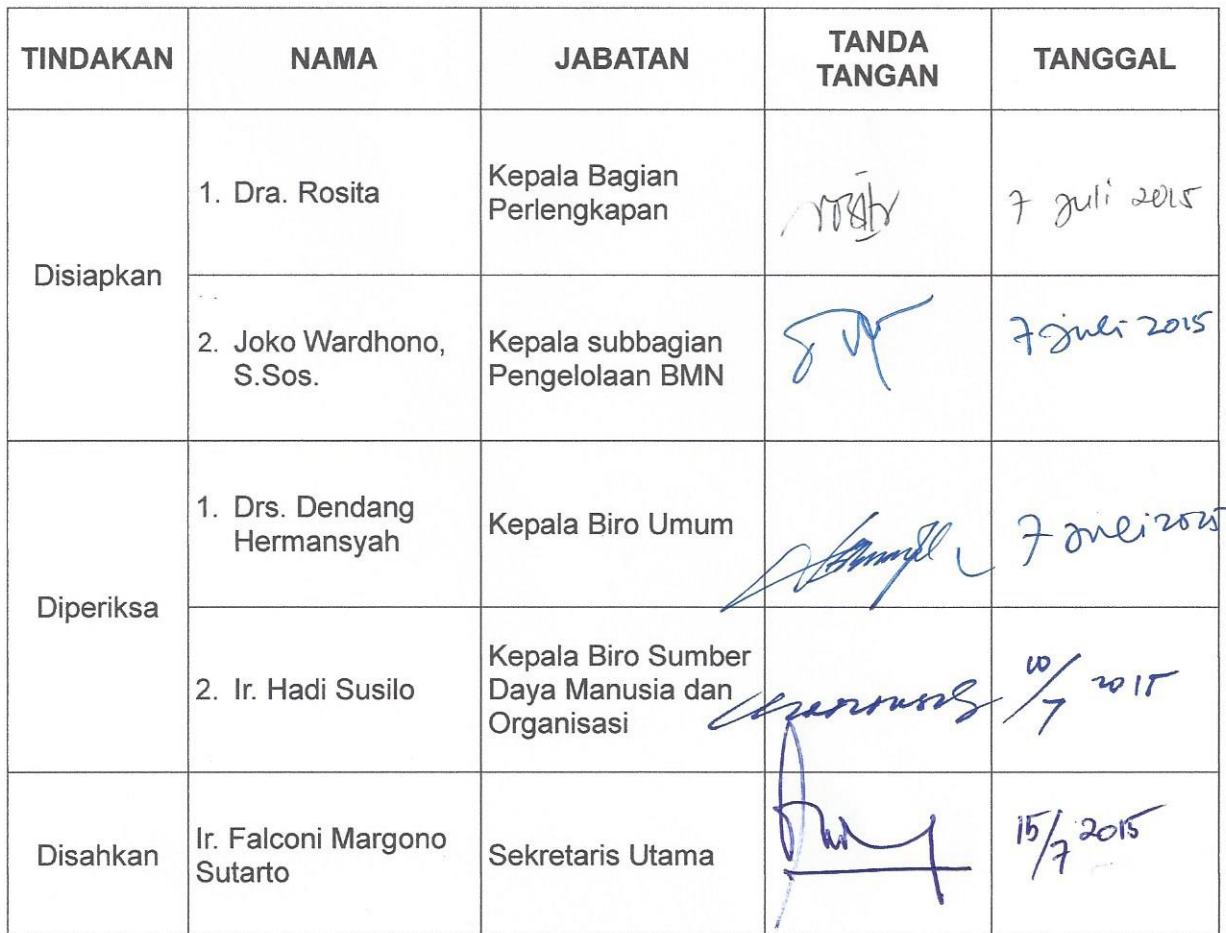 TINDAKAN
NAMA
JABATAN
TANDA
TANGAN
TANGGAL
Disiapkan
1. Dra. Rosita
Kepala Bagian
Perlengkapan
7 Juli 2015
2. Joko Wardhono,
S.Sos.
Kepala subbagian
Pengelolaan BMN
7 Juli 2015
Diperiksa
1. Drs. Dendang
Hermansyah
Kepala Biro Umum
7 Juli 2015
2. Ir. Hadi Susilo
Kepala Biro Sumber
Daya Manusia dan
Organisasi
10/7 2015
Disahkan
Ir. Falconi Margono
Sutarto
Sekretaris Utama
15/7 2015